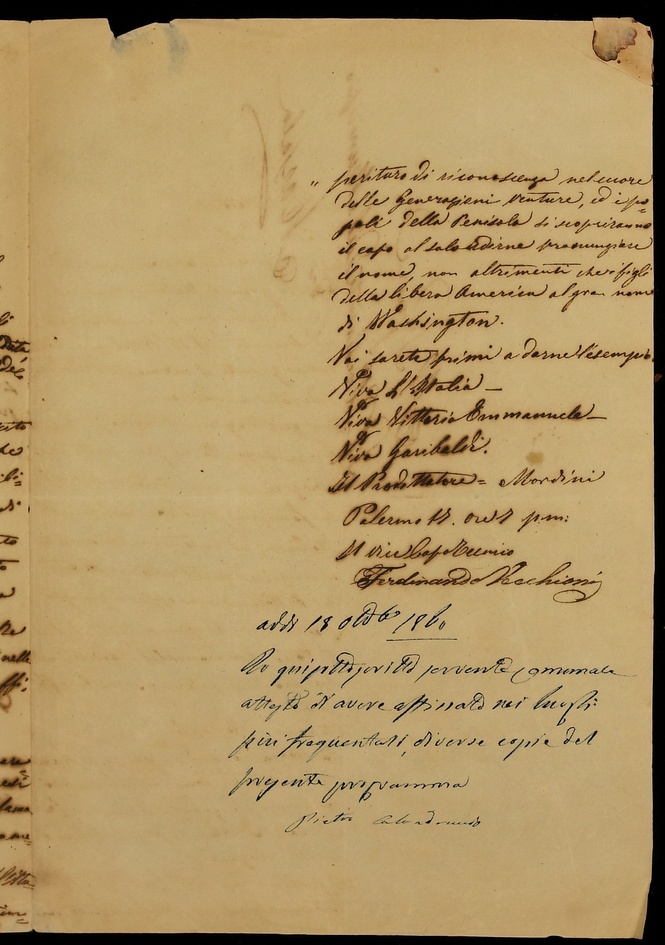 " perituro di riconoscenza nel cuore
delle Generazioni venture, ed i po=
poli della Penisola si scopriranno
il capo al solo udirne pronunziare
il nome, non altrimenti che i figli
della libera America al gran nome
di Washington.
Voi sarete primi a darne l'esempio.
Viva L'Italia —
Viva Vittorio Emmanuele —
Viva Garibaldi.
Il Prodittatore = Mordini
Palermo 17. ore 7 p.m:
Il vice Capo Tecnico
Ferdinando Vecchioni
addì 18 ottobre 1860
Io qui sottoscritto servente comunale
attesto di avere affissato nei luoghi
più frequentati, diverse copie del
presente programma
Pietro